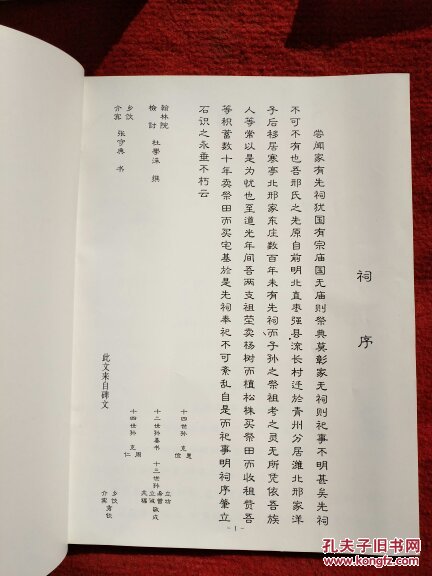 祠序
尝闻家有先祠犹国有宗庙国无庙则祭典莫彰家无祠则祀事不明甚矣先祠
不可不有也吾邢氏之先原自前明北直枣强县流长村迁於青州分居潍北邢家洋
子后移居寒亭北邢家东庄数百年未有先祠而子孙之祭祖考之灵无所凭依吾族
人等常以是为忧也至道光年间吾两支祖茔卖杨树而植松株买祭田而收租赀吾
等积蓄数十年卖祭田而买宅基於是先祠奉祀不可紊乱自是而祀事明祠序肇立
石识之永垂不朽云
翰林院
检讨 杜 撰
乡饮
介宾 张守典 书
十四世孙 克
十三世孙
十二世孙春书
十四世孙 克仁 周
乡饮
介宾
此文来自碑文
- 1 -
孔夫子旧书网
KONGFZ.COM